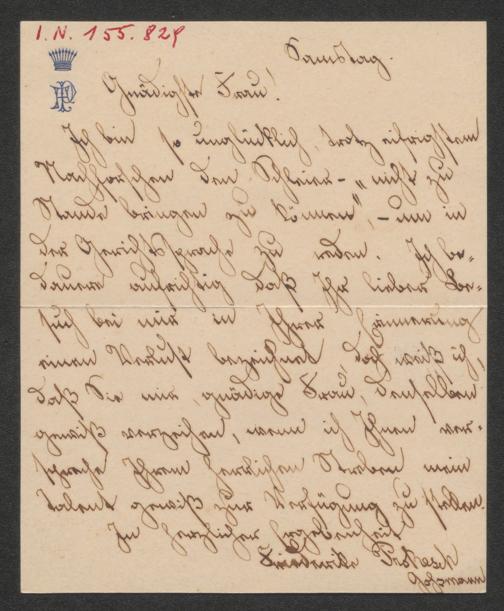 I.N. 155.829
Samstag.
Gnädigste Frau!
Ich bin so unglücklich, trotz eifrigstem
Nachforschen den Schleier – „nicht zu
Stande bringen zu können", – um in
der Gerichtssprache zu reden. Ich be-
dauere aufrichtig daß Ihr lieber Be-
such bei mir in Ihrer Erinnerung
einen Verlust bezeichnet, doch weiß ich,
daß Sie mir, gnädige Frau, denselben
gewiß verzeihen, wenn ich Ihnen ver-
spreche Ihrem herrlichen Streben mein
Talent gewiß zur Verfügung zu stellen.
In herzlicher Ergebenheit
Friederike Prokesch
Gossmann